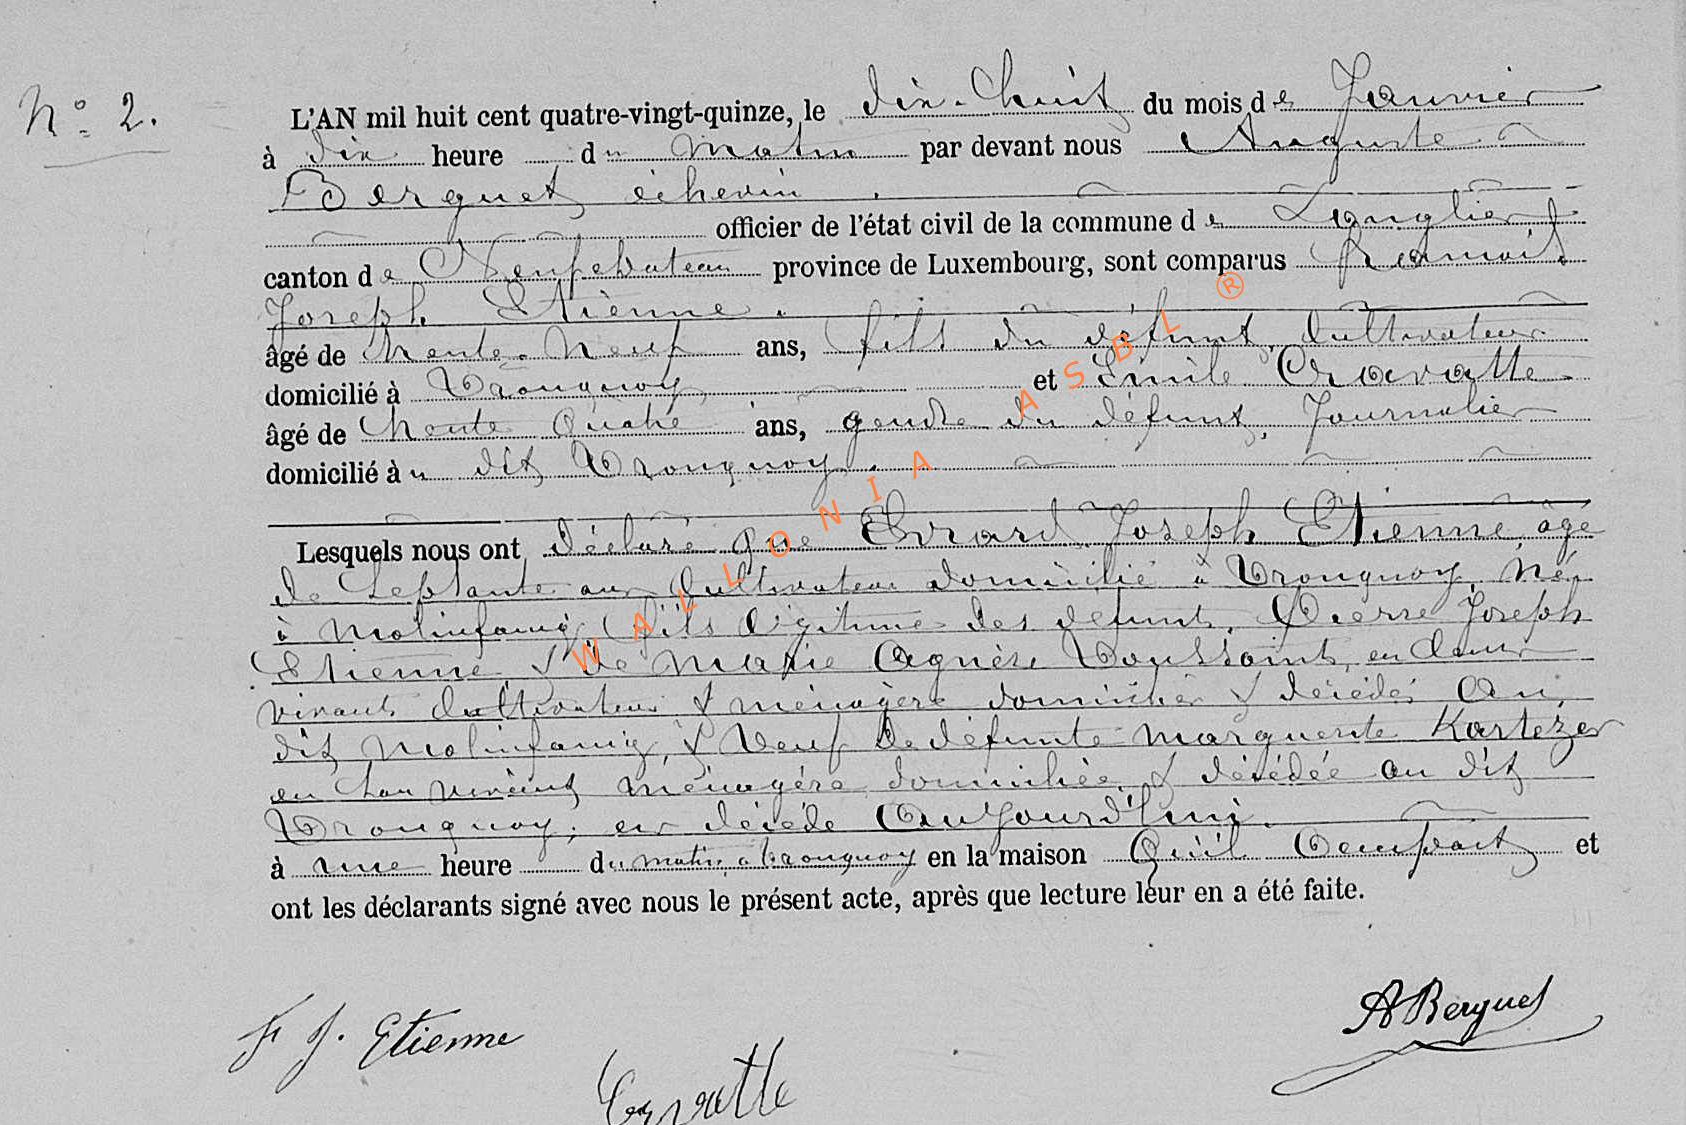 N° 2.
L'AN mil huit cent quatre-vingt-quinze, le dix-huit du mois de Janvier
à dix heure du matin par devant nous Auguste
Berquet échevin
officier de l'état civil de la commune de Longlier
canton de Neufchateau province de Luxembourg, sont comparus
Joseph Etienne.
âgé de trente-neuf ans, fils du défunt, Cultivateur
domicilié à Tronquoy et Emile Cravatte
âgé de trente quatre ans, gendre du défunt, Journalier
domicilié à u dit Tronquoy.
Lesquels nous ont déclaré que Evrard Joseph Etienne, âgé
de Septante ans Cultivateur domicilié à Tronquoy, Né
à Molinfaing, fils légitime des défunts, Pierre Joseph
Etienne, & de Marie Agnès Toussaint, en leur
vivant Cultivateur & ménagère domiciliés & décédés Au
dit Molinfaing, & Veuf de défunte Marguerite Kartezer
en Son vivant ménagère domiciliée & décédée au dit
Tronquoy, est décédé Aujourd'hui
à une heure du matin à Tronquoy en la maison Qu'il Occupait et
ont les déclarants signé avec nous le présent acte, après que lecture leur en a été faite.
F J. Etienne
Cravatte
A Berquet
WALLONIA ASBL ®